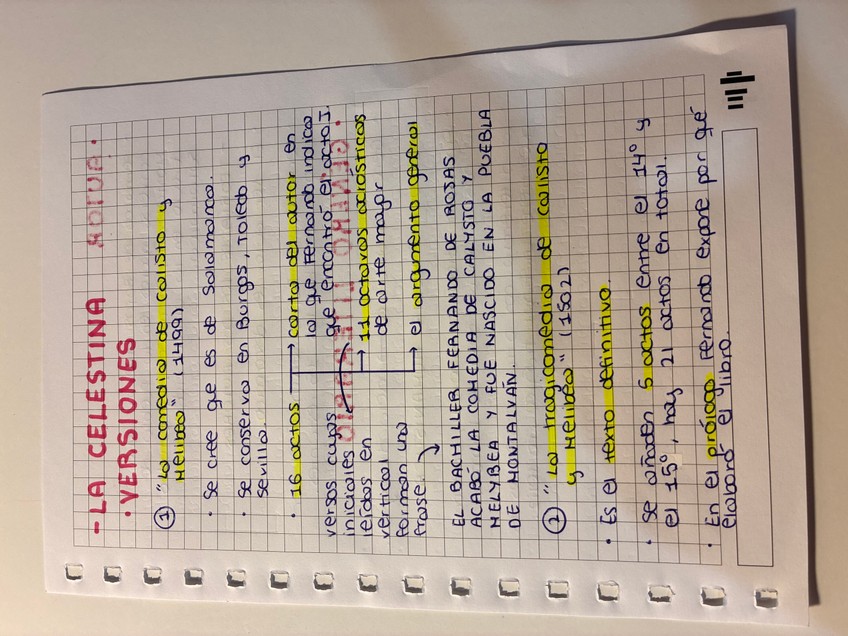 - LA CELESTINA
• VERSIONES
① "La comedia de Calisto y
Melibea" (1499)
• Se cree que es de Salamanca.
• Se conserva en Burgos, Toledo y
Sevilla.
• 16 actos → carta del autor en
la que Fernando indica
que encontró el acto I.
→ 11 octavas acrósticas
de arte mayor
→ el argumento general
versos cuyas
iniciales
leídas en
vertical
forman una
frase.
EL BACHILLER FERNANDO DE ROJAS
ACABÓ LA COMEDIA DE CALYSTO Y
MELYBEA Y FUE NASCIDO EN LA PUEBLA
DE MONTALVÁN.
② "La tragicomedia de Calisto
y Melibea" (1502)
• Es el texto definitivo.
• Se añaden 5 actos entre el 14º y
el 15º, hay 21 actos en total.
• En el prólogo Fernando expone por qué
elaboró el libro.